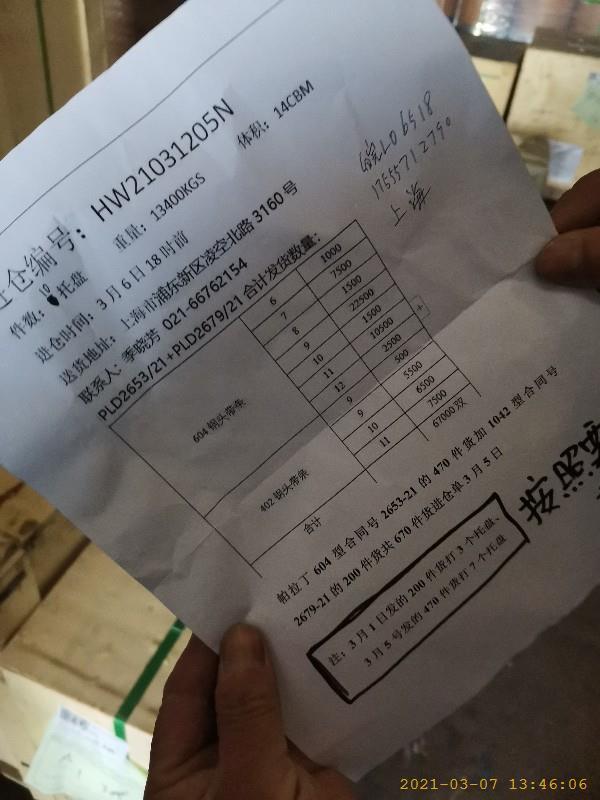 仓编号：HW21031205N
件数：10托盘 重量：13400KGS 体积：14CBM
进仓时间：3月6日18时前
送货地址：上海市浦东新区凌空北路3160号
联系人：季晓芳 021-66762154
PLD2653/21+PLD2679/21合计发货数量：
皖L06518
17555712790
上海
604钢头带条
6 1000
7 7500
8 1500
9 22500
10 1500
11 10500
12 2500
402钢头带条
9 500
9 5500
10 6500
11 7500
合计 67000双
帕拉丁604型合同号2653-21的470件货加1042型合同号
2679-21的200件货共670件货进仓单3月5日
注：3月1日发的200件货打3个托盘、
3月5号发的470件货打7个托盘
按照
2021-03-07 13:46:06